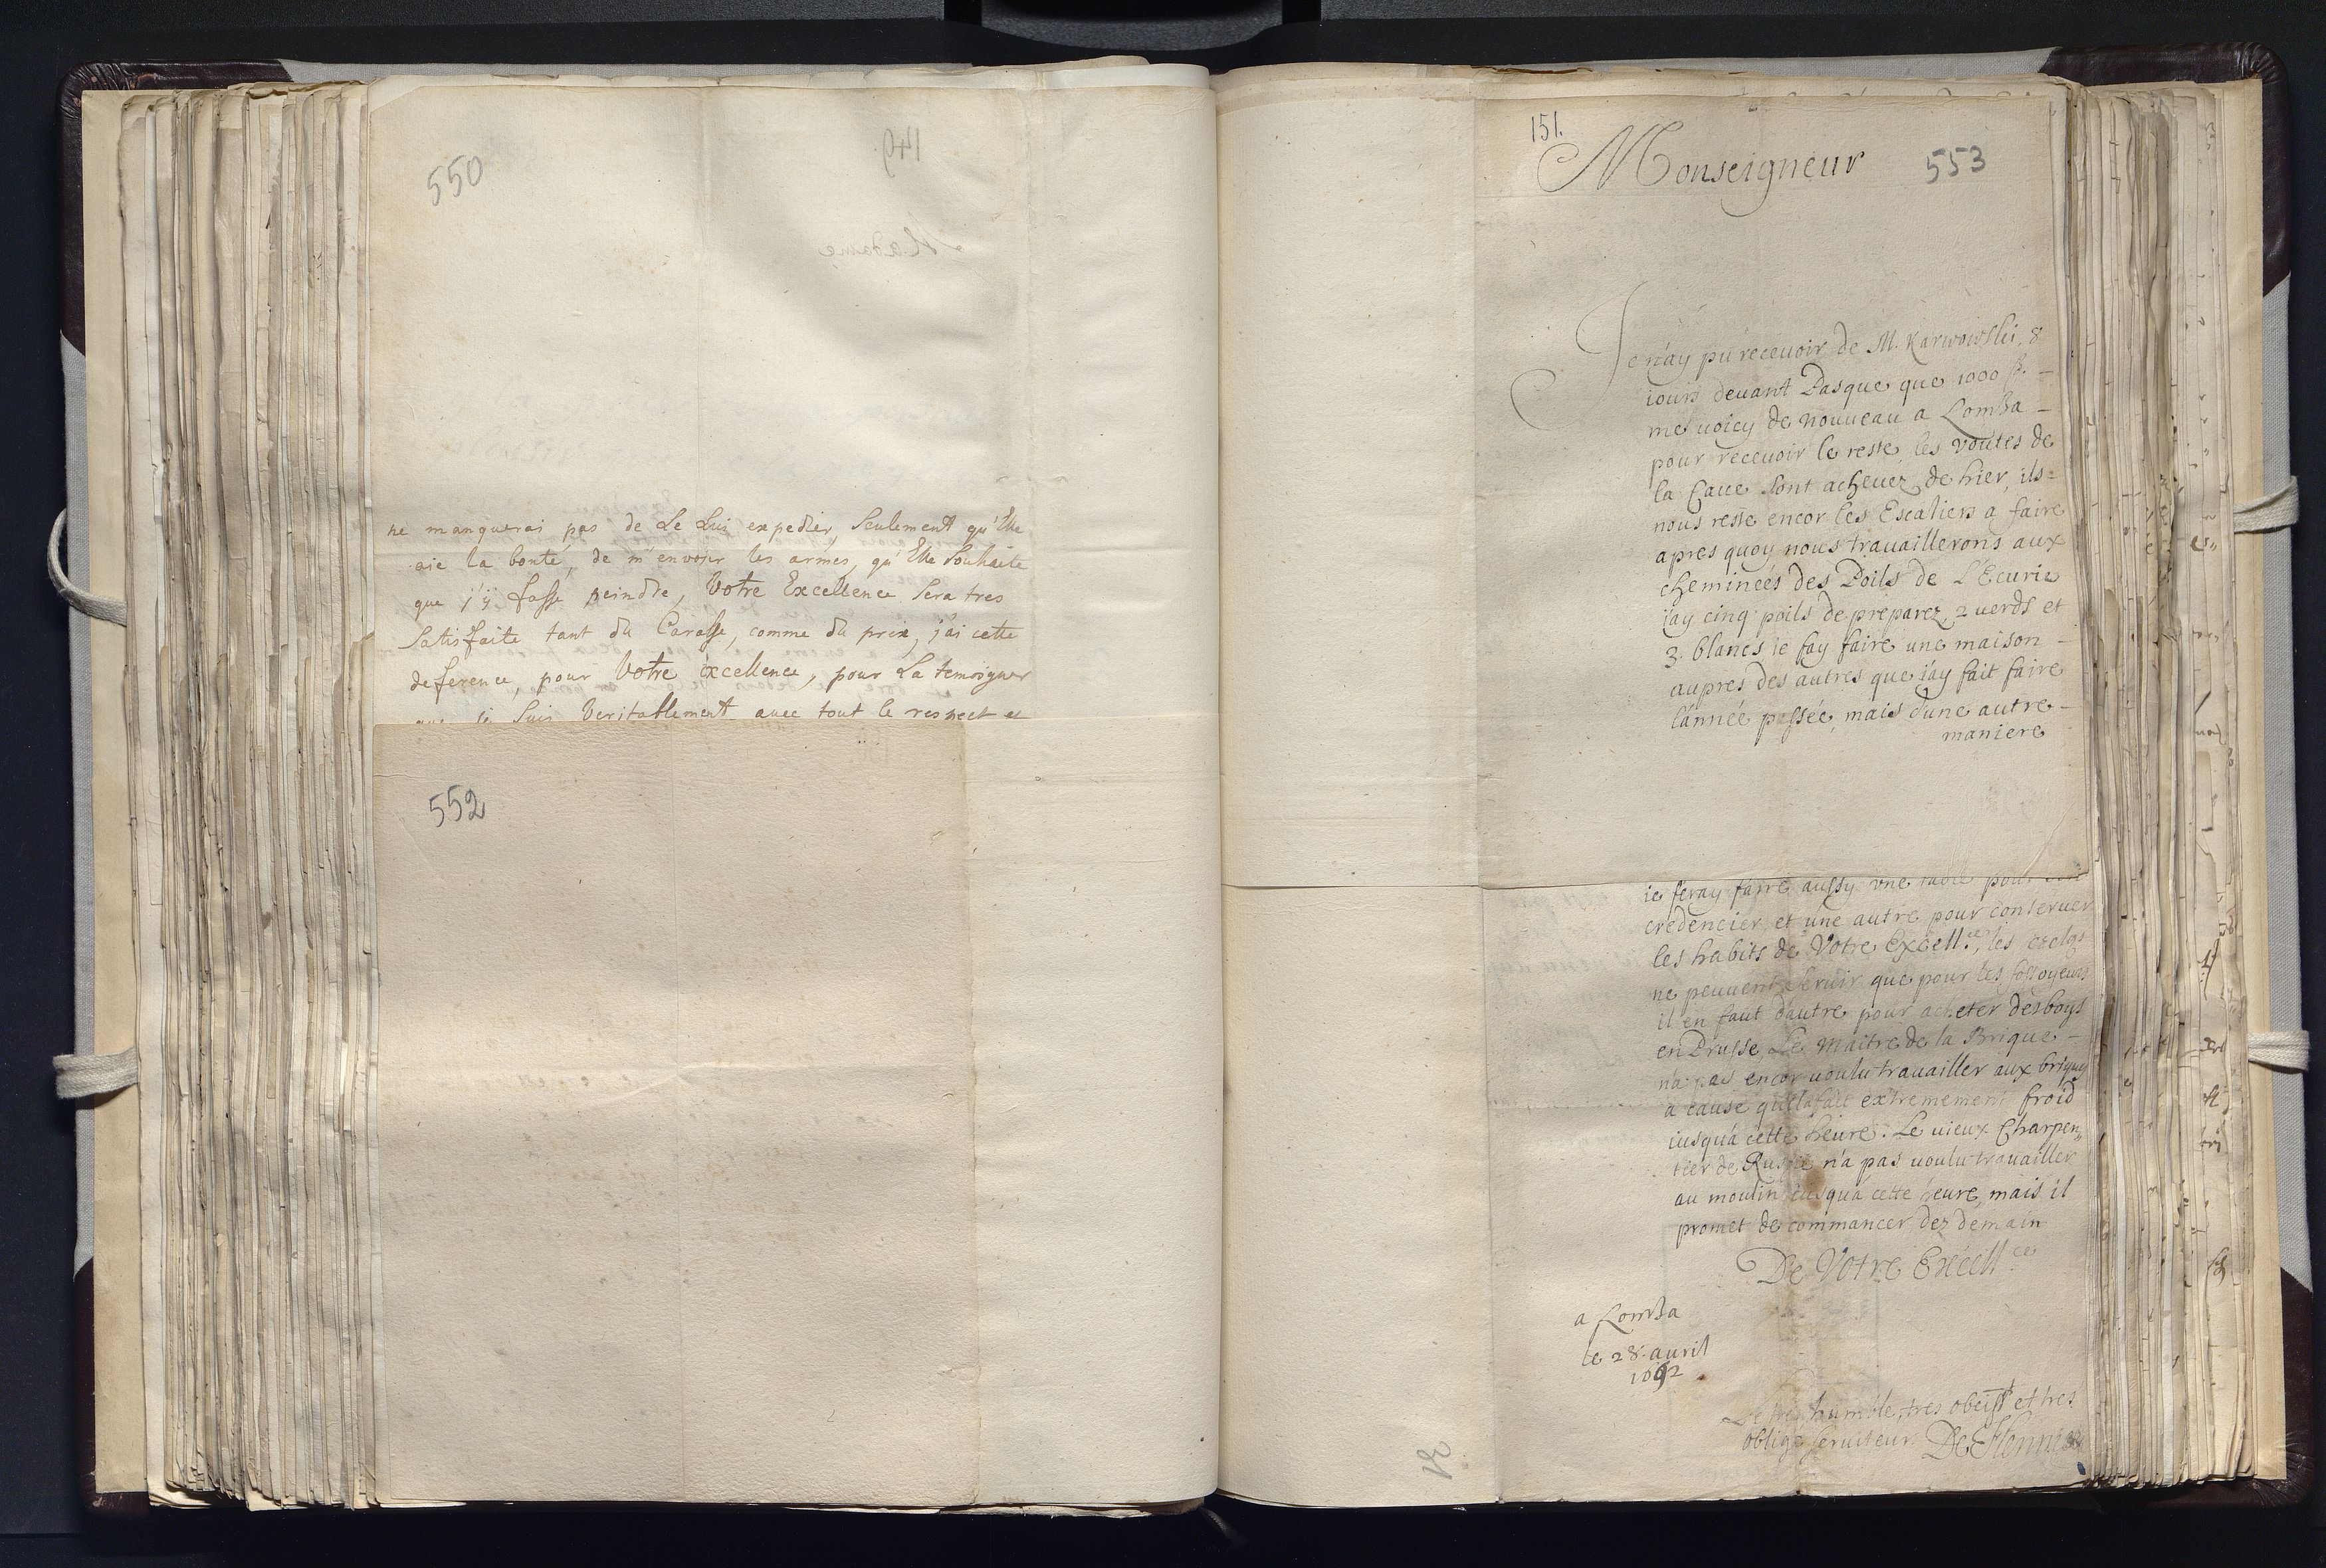 550
ne manquerai pas de Le Lui expedier, Seulement qu'Elle
aie la bonté, de m'envoier les armes, qu'Elle Souhaite
que j'ÿ fasse peindre, Votre Excellence Sera tres
Satisfaite tant du Carosse, comme du prix, j'ai cette
deference, pour Votre excellence, pour La temoigner
que je Suis Veritablement avec tout le respect et
552
151.
Monseigneur 553
Je n'ay pu receuoir de M. Karwowski, 8
iours deuant Pasque que 1000 fl. -
me uoicy de nouueau a Lomza -
pour receuoir le reste, les voutes de
la Caue sont acheuez de hier, ils =
nous reste encor les Escaliers a faire
apres quoy nous trauaillerons aux
cheminées des Poils de L'Ecurie
j'ay cinq poils de preparez, 2 uerds et
3. blancs ie fay faire une maison -
aupres des autres que j'ay fait faire
l'année passée, mais d'une autre -
maniere
ie feray faire aussy une table pour
credencier, et une autre pour conseruer
les habits de Votre Excell.ce, les
ne peuuent seruir que pour les fossoyeurs
il en faut d'autre pour acheter des boys
en Prusse, Le Maitre de la Brique -
n'a pas encor uoulu trauailler aux briques
a cause qu'il a fait extremement froid
iusqu'a cette heure. Le uieux Charpen„
tier de Russie n'a pas uoulu trauailler
au moulin iusqu'a cette heure, mais il
promet de commancer dez demain
De Votre Excell.ce
a Lomza
le 28 auril
1692
Le tres humble, tres obeisst et tres
obligé seruiteur
151
149
Madame